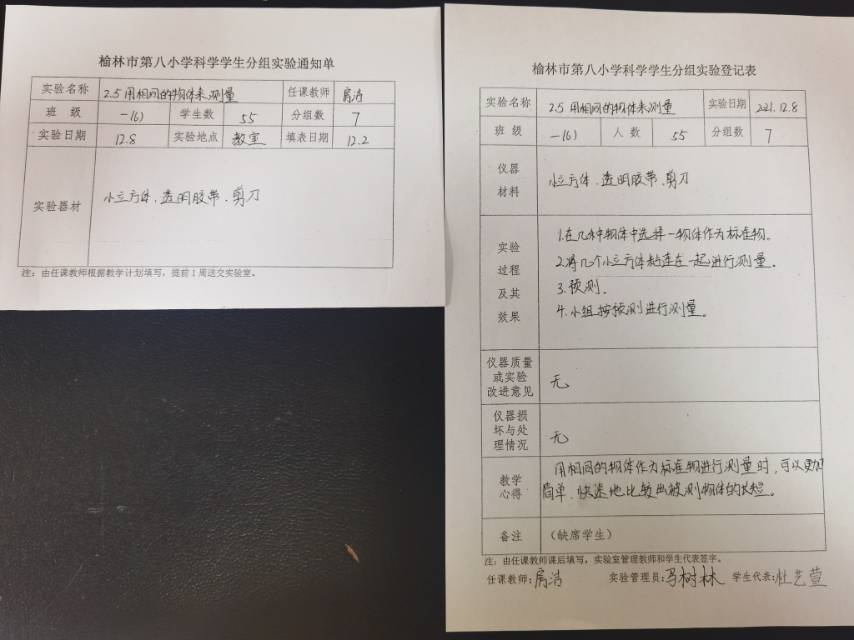 榆林市第八小学科学学生分组实验通知单
实验名称 2.5用相同的物体来测量 任课教师 房浩
班 级 一(6) 学生数 55 分组数 7
实验日期 12.8 实验地点 教室 填表日期 12.2
实验器材 小立方体、透明胶带、剪刀
注：由任课教师根据教学计划填写，提前1周送交实验室。
榆林市第八小学科学学生分组实验登记表
实验名称 2.5用相同的物体来测量 实验日期 221.12.8
班 级 一(6) 人 数 55 分组数 7
仪器
材料
小立方体、透明胶带、剪刀
实验
过程
及其
效果
1.在几种物体中选择一物体作为标准物。
2.将几个小立方体粘连在一起进行测量。
3.预测。
4.小组按预测进行测量。
仪器质量
或实验
改进意见
无
仪器损
坏与处
理情况
无
教学
心得
用相同的物体作为标准物进行测量时，可以更加
简单、快速地比较出被测物体的长短。
备注 (缺席学生)
注：由任课教师课后填写，实验室管理教师和学生代表签字。
任课教师：房浩 实验管理员：马树林 学生代表：杜艺萱